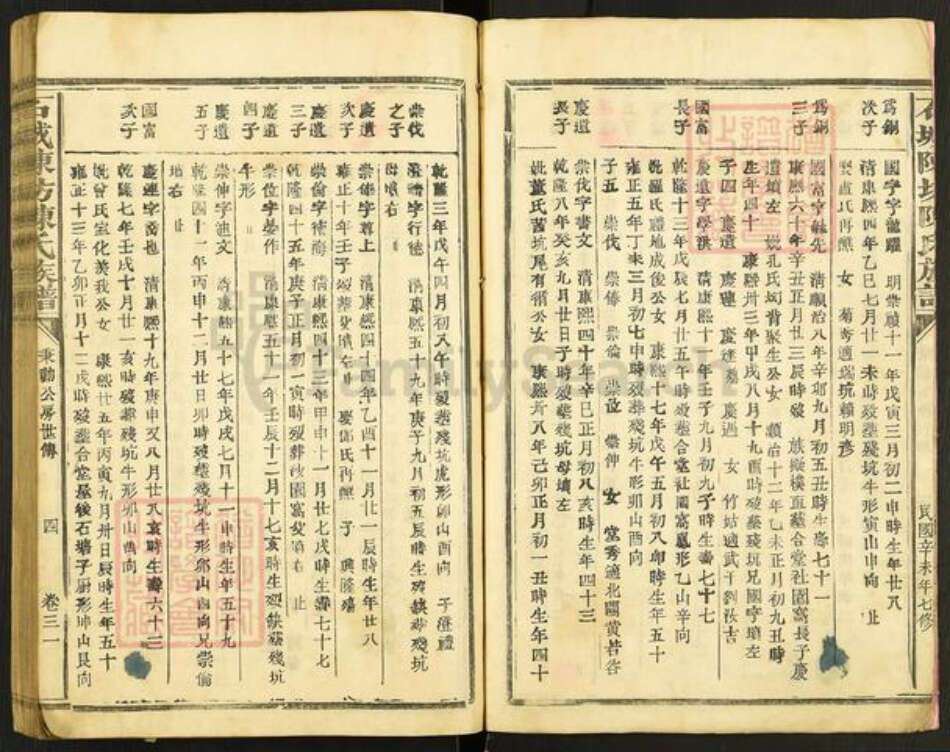 石城陳坊陳氏族譜
民國辛未年七修
為錦
次子
國字字龍躍 明崇禎十一年戊寅三月初二申時生年廿八
清康熙四年乙巳七月廿一未時歿葬殘坑牛形寅山申向 止
女 菊秀適瑞坑賴明彥
為錦
三子
國富字 先 清順治八年辛卯九月初五丑時生壽七十一
康熙六十年辛丑正月廿三辰時歿 葬合堂社園窩長子慶
遺墳左 娶孔氏 背聚生公女 順治十二年乙未正月初九丑時
生年四十 康熙卅三年甲戌八月十九酉時歿葬殘坑兄國字墳左
子四 慶遺 慶連 慶達 慶過 女 竹姑適武干劉汝吉
國富
長子
慶遺字學洪 清康熙十一年壬子九月初九子時生壽七十七
乾隆十三年戊辰七月廿五午時歿葬合堂社園窩鳳形乙山辛向
娶陳氏 地成後公女 康熙十七年戊午五月初八卯時生年五十
雍正五年丁未三月初七申時歿葬殘坑牛形卯山酉向
子五 崇伐 崇俸 崇倫 崇位 崇伸 女 堂秀適北關黃若谷
慶遺
長子
崇伐字書文 清康熙四十年辛巳正月初八亥時生年四十三
乾隆八年癸亥九月廿日子時歿葬殘坑母墳左
娶董氏茜坑尾有獅公女 康熙卅八年己卯正月初一丑時生年四十
乾隆三年戊午四月初八午時歿葬殘坑虎形卯山酉向 子應禮
崇伐
之子
應禮字行德 清康熙五十九年庚子九月初五辰時生殁缺葬殘坑
母墳右
慶遺
次子
崇俸字尊上 清康熙四十四年乙酉十一月廿一辰時生年廿八
雍正十年壬子歿葬 娶鄧氏再醮 子 興隆殤
慶遺
三子
崇倫字 清康熙四十三年甲申十一月廿七戌時生壽七十七
乾隆四十五年庚子正月初二寅時歿葬 園窩 墳 止
慶遺
四子
崇位字晏作 清康熙五十一年壬辰十二月十七亥時生殁缺葬殘坑
牛形
慶遺
五子
崇伸字迪文 清康熙五十七年戊戌七月十一申時生年五十九
乾隆四十一年丙申十二月廿日卯時歿葬殘坑牛形卯山酉向兄崇倫
墳右 止
國富
次子
慶連字 清康熙十九年庚申又八月廿八亥時生壽六十三
乾隆七年壬戌十月廿一亥時歿葬殘坑牛形卯山酉向
娶曾氏宣化羨我公女 康熙廿五年丙寅九月卅日辰時生年五十
雍正十三年乙卯正月十二戌時歿葬合堂屋後石塘子廚形坤山艮向
石城陳坊陳氏族譜
秉聰公房世傳
四
卷三一